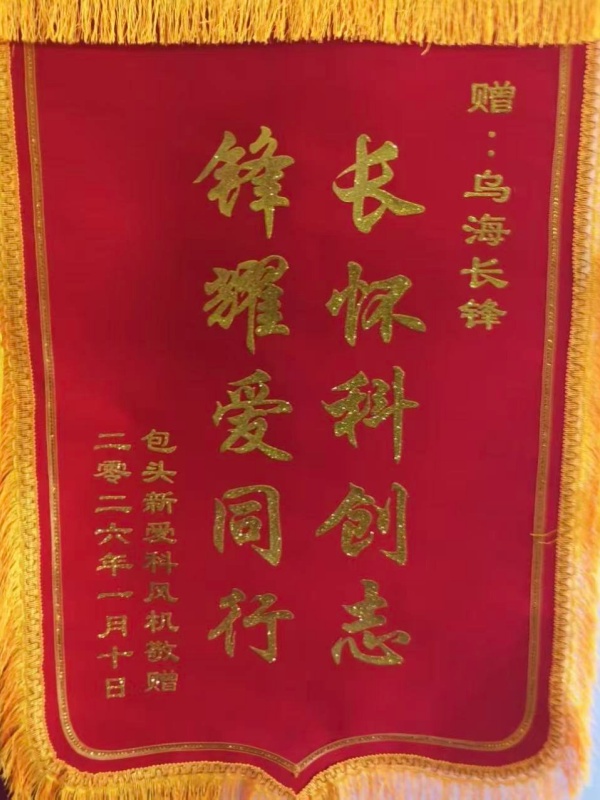 赠：乌海长锋
长怀科创志
锋耀爱同行
包头新爱科风机敬赠
二零二六年一月十日